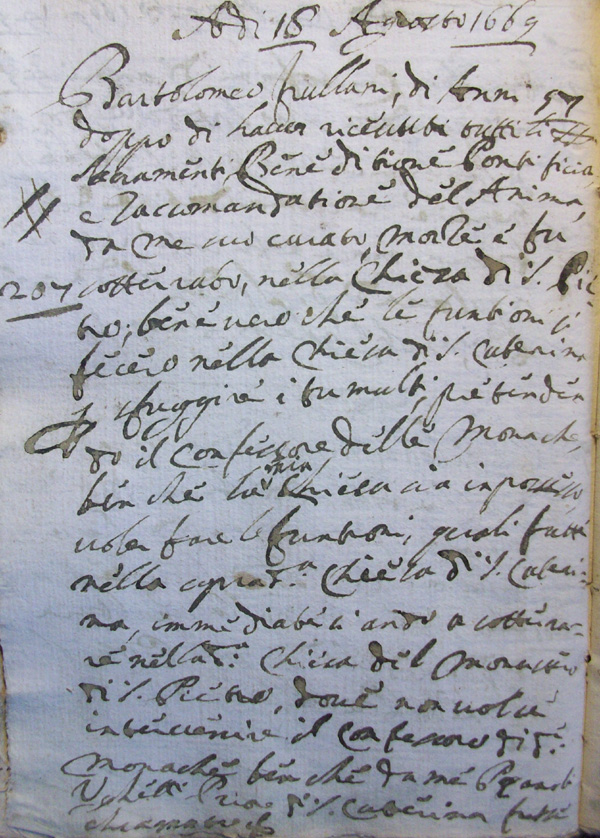 Adi 18 Agosto 1669
Bartolomeo Frullani, di Anni 57
doppo di haver ricevuti tutti li SS.
Sacramenti Beneditione Pontificia,
e racomandatione del Anima,
da me suo curato, morse e fu
207 sotturato, nella Chieza di S. Pie
tro, bene vero che le funtioni si
fecero nella Chieza di S. Caterina
p sfuggire i tumulti, pretenden
do il Confessore delle Monache,
ben che la mia Chieza sia in possesso
voler fare le funtioni, quali fatte
nella Chieza di S. Cateri-
na, immediate si andò a sottura-
re nella d.ª Chieza del Monastero
di S. Pietro, dove non volse
intervenire il Confessoro di d.e
Monache ben che da me
Priore di S. Caterina fusse
chiamato